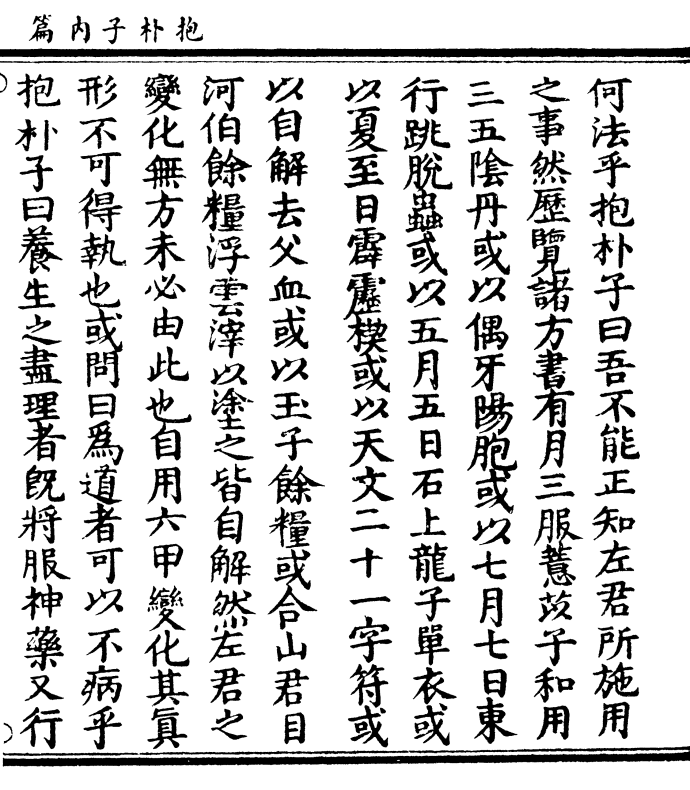 抱朴子内篇
何法乎抱朴子曰吾不能正知左君所施用
之事然歷覽諸方書有月三服薏苡子和用
三五陰丹或以偶牙陽胞或以七月七日東
行跳脫蟲或以五月五日石上龍子單衣或
以夏至日霹靂楔或以天文二十一字符或
以自解去父血或以玉子餘糧或合山君目
河伯餘糧浮雲滓以塗之皆自解然左君之
變化無方未必由此也自用六甲變化其眞
形不可得執也或問曰爲道者可以不病乎
抱朴子曰養生之盡理者旣將服神藥又行